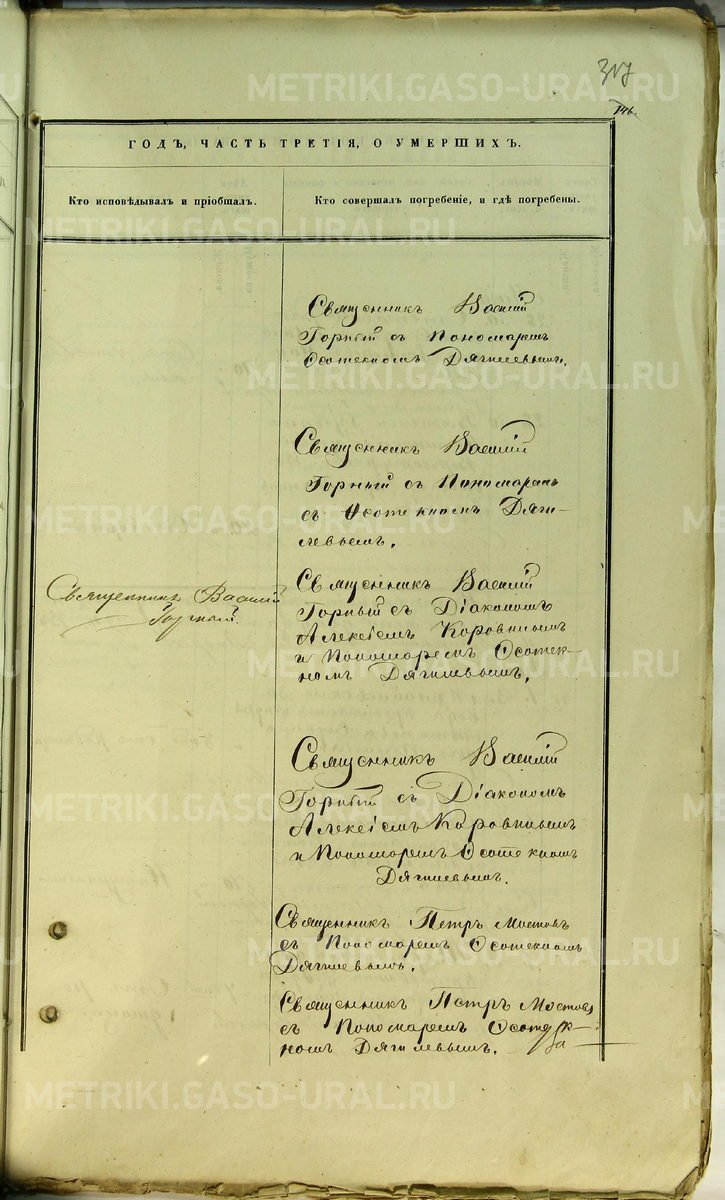 317
146.
ГОДЪ, ЧАСТЬ ТРЕТІЯ, О УМЕРШИХЪ.
Кто исповѣдывалъ и пріобщалъ.
Кто совершалъ погребеніе, и гдѣ погребены.
Священникъ Василій
Горный съ Пономаремъ
Ѳеотекномъ Дягилевымъ.
Священникъ Василій
Горный съ Пономаремъ
съ Ѳеотекномъ Дяги-
левымъ.
Священникъ Василій
Горный.
Священникъ Василій
Горный съ Діакономъ
Алексіемъ Коровинымъ
и Пономаремъ Ѳеотек-
номъ Дягилевымъ.
Священникъ Василій
Горный съ Діакономъ
Алексіемъ Коровинымъ
и Пономаремъ Ѳеотекномъ
Дягилевымъ.
Священникъ Петръ Мостовъ
съ Пономаремъ Ѳеотекномъ
Дягилевымъ.
Священникъ Петръ Мостовъ
съ Пономаремъ Ѳеотек-
номъ Дягилевымъ.
METRIKI.GASO-URAL.RU